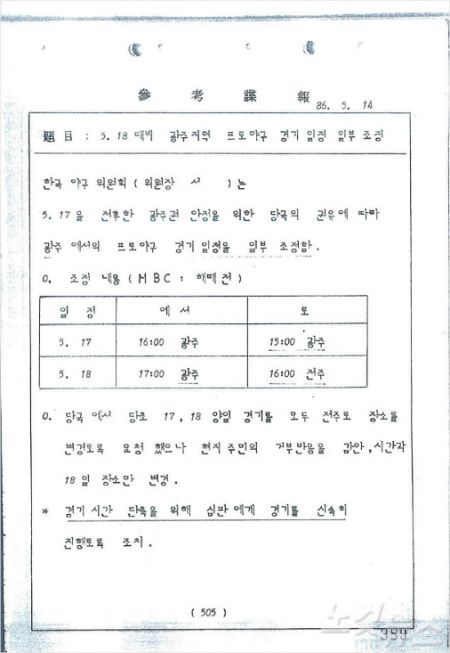 參 考 諜 報
86. 5. 14
題 目 : 5. 18 대비 광주지역 프로야구 경기 일정 일부 조정
한국 야구 위원회 ( 위원장 서 ) 는
5. 17을 전후한 광주권 안정을 위한 당국의 권유에 따라
광주 에서의 프로야구 경기 일정을 일부 조정함.
0. 조정 내용 ( MBC : 해태 전 )
일 정 에 서 로
5. 17 16:00 광주 15:00 광주
5. 18 17:00 광주 16:00 전주
0. 당국 에서 당초 17, 18 양일 경기를 모두 전주로 장소를
변경토록 요청 했으나 현지 주민의 거부반응을 감안, 시간과
18 일 장소만 변경.
* 경기 시간 단축을 위해 심판 에게 경기를 신속히
진행토록 조치.
( 505 )
노컷뉴스
399